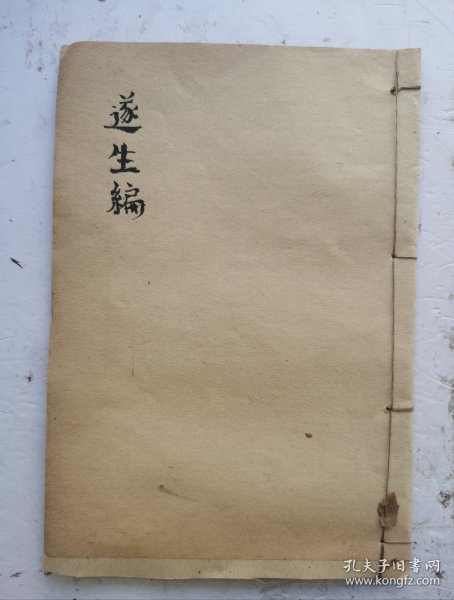 遂生編
孔夫子旧书网
https://www.kongfz.com